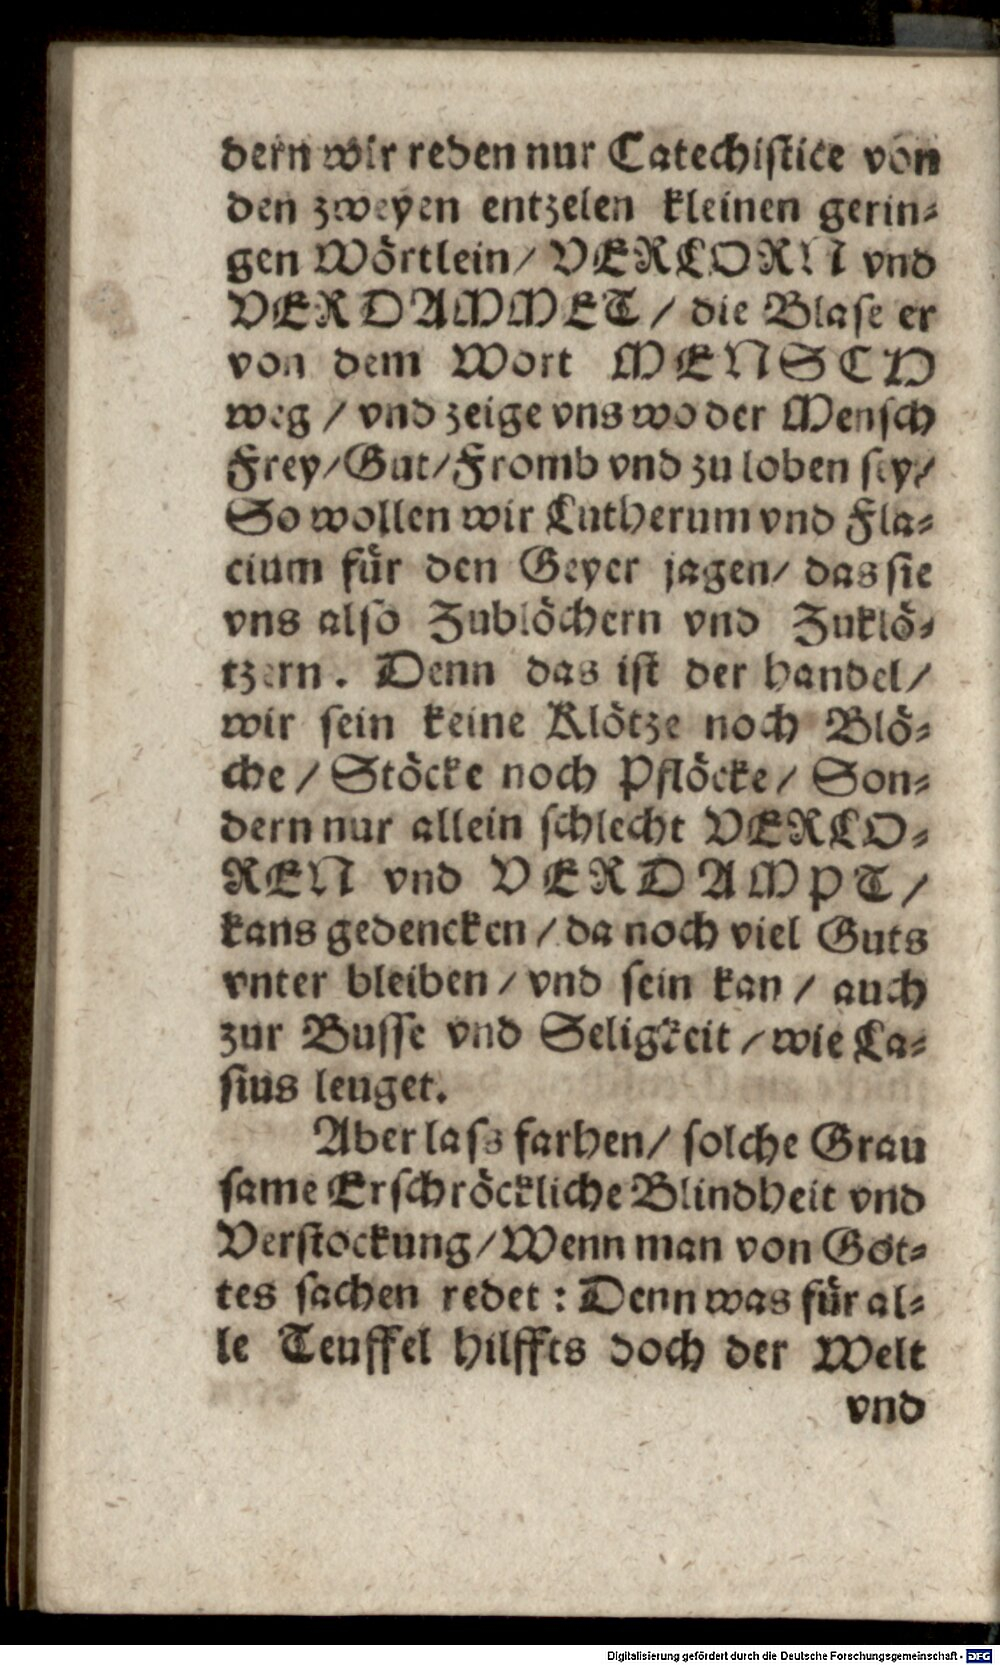 dern wir reden nur Catechistice von
den zweyen entzelen kleinen gerin⸗
gen Wörtlein/ VERLORN vnd
VERDAMMET/ die Blase er
von dem Wort MENSCH
weg/ vnd zeige vns wo der Mensch
Frey/Gut/Fromb vnd zu loben sey/
So wollen wir Lutherum vnd Fla⸗
cium für den Geyer jagen/ das sie
vns also Zublöchern vnd Zuklö⸗
tzern. Denn das ist der handel/
wir sein keine Klötze noch Blö⸗
che/ Stöcke noch Pflöcke/ Son⸗
dern nur allein schlecht VERLO⸗
REN vnd VERDAMPT/
kans gedencken/ da noch viel Guts
vnter bleiben/ vnd sein kan/ auch
zur Busse vnd Seligkeit/ wie La⸗
sius leuget.
Aber lass farhen/ solche Grau
same Erschröckliche Blindheit vnd
Verstockung/ Wenn man von Got⸗
tes sachen redet: Denn was für al⸗
le Teuffel hilffts doch der Welt
vnd
Digitalisierung gefördert durch die Deutsche Forschungsgemeinschaft - DFG